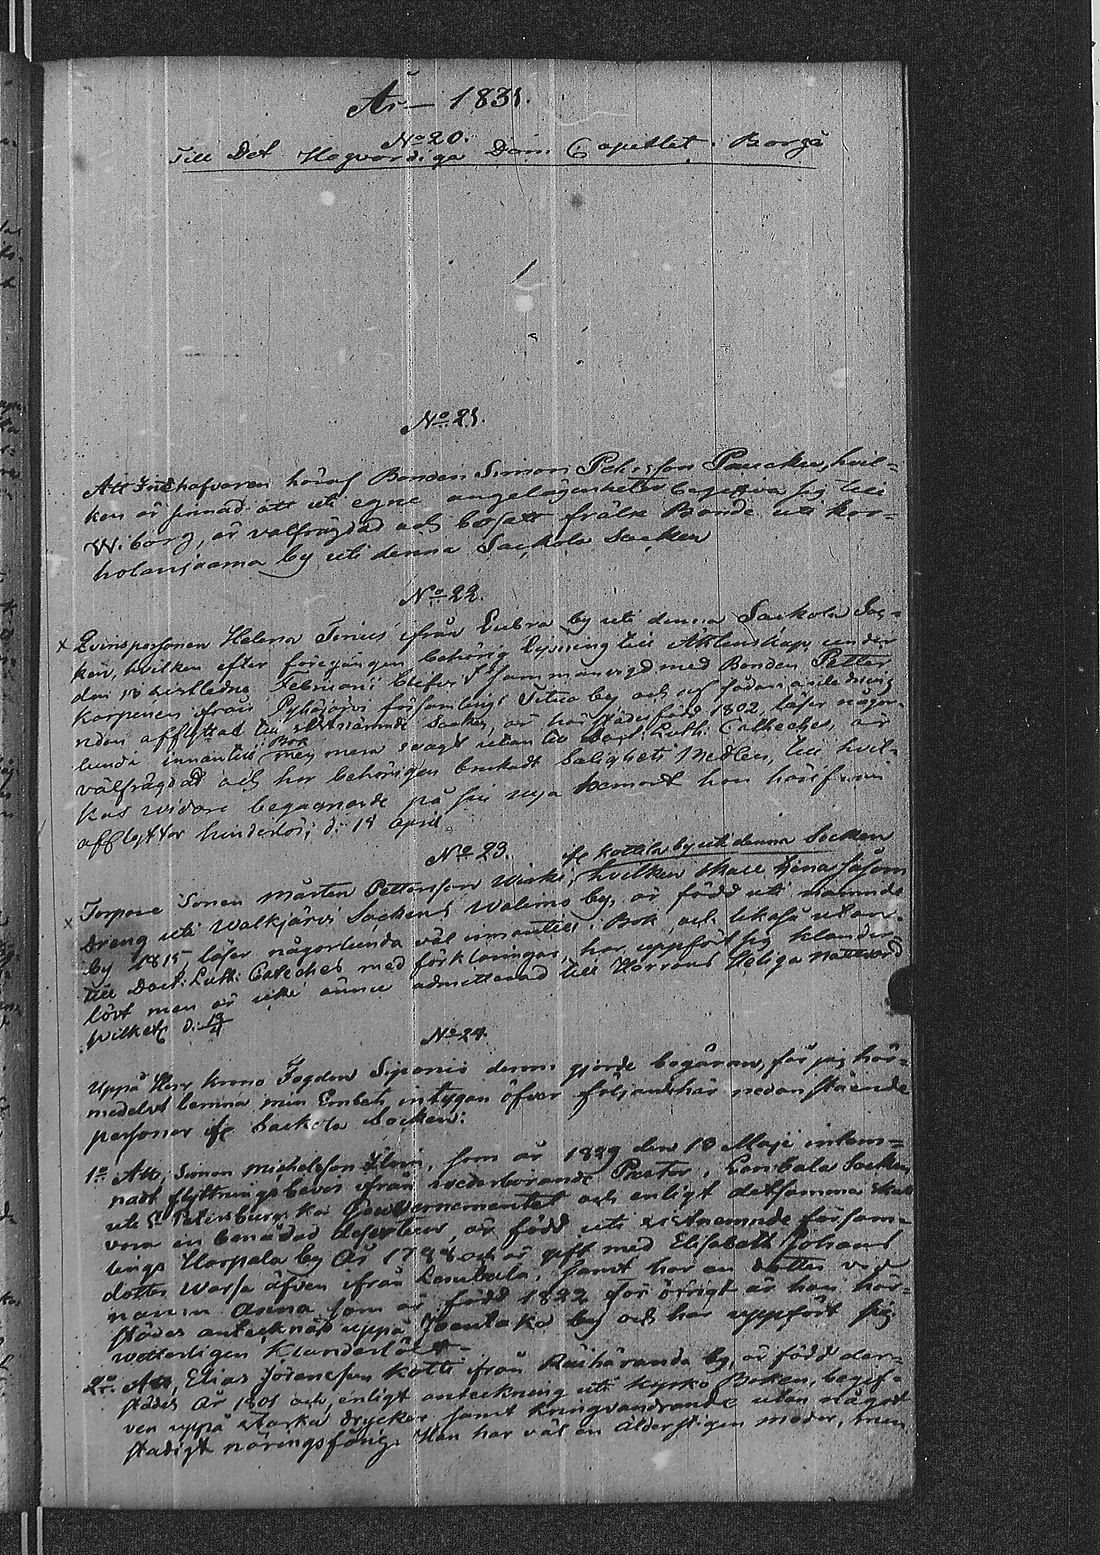 År 1831.
No 20.
Till Det Högvördiga Dom Capitlet i Borgå
No 21.
Att Innehafvaren häraf Bonden Simon Pehrsson Paucku, hvil-
ken är sinnad att uti egne angelägenheter begifva sig till
Wiborg, är välfrägdad och besutt frälse Bonde uti Kor-
holansaama by uti denna Sackola Socken
No 22.
x Qvinspersonen Helena ifrån by uti denna Sackola Soc-
ken, hvilken efter föregången behörig Lysning till Äktenskap under
den 18 sistledne Februarii blifvit sammanvigd med Bonden Petter
Karponen från Pyhäjärvi församling by och
afflyttad till är härstädes född 1802, läser någor-
lunda innantill i Bok men mera svagt utan till Doct: Luth: Catheches, är
välfrägdad och har behörigen brukadt Salighets Medlen, till hvil-
kas vidare begagnande på sin nya hemort hon härifrån
afflyttar hinderlös; d: 18 April
No 23. ifr Kottila by uti denna Socken
x Torpare Sonen Mårten Pettersson Wirki, hvilken skall tjena såsom
Dreng uti Walkjärvi Sockens Walims by, är född uti nämnde
by 1815 läser någorlunda väl innantill i Bok, och likaså utan-
till Doct: Luth: Cateches med förklaringar, har uppfört sig klander-
löst men är icke ännu admitterad till Herrans Heliga Nattvard
d: 19/4
No 24.
Uppå Herr Krono Fogden Siponii derom gjorde begäran, får jag här-
medelst lemna min Embets intygan öfver följande här nedan stående
personer ifr Sackola Socken:
1o Att, Simon Michelsson som år 1829 den 18 Maji inlem-
nadt flyttningsbevis ifrån vederbörande Pastor i Lembala Socken
uti St Petersburgska Gouvernementet och enligt detsamma skall
vara en benådad deserteur, är född uti församl-
lings Horpala by År 1788 och är gift med Elisabeth Johans
dotter äfven ifrån Lembala, samt har en dotter vid
namn Anna som är född 1822 För öfrigt är han här-
städes antecknad uppå by och har uppfört sig
vetterligen klanderlöst
2o Att, Elias Jöransson Kotti från by, är född der-
städes År 1801 och enligt anteckning uti Kyrko Boken, begif-
ven uppå starka drycker samt kringvandrande utan något
stadigt näringsfång. Han har väl en ålderstigen moder, men